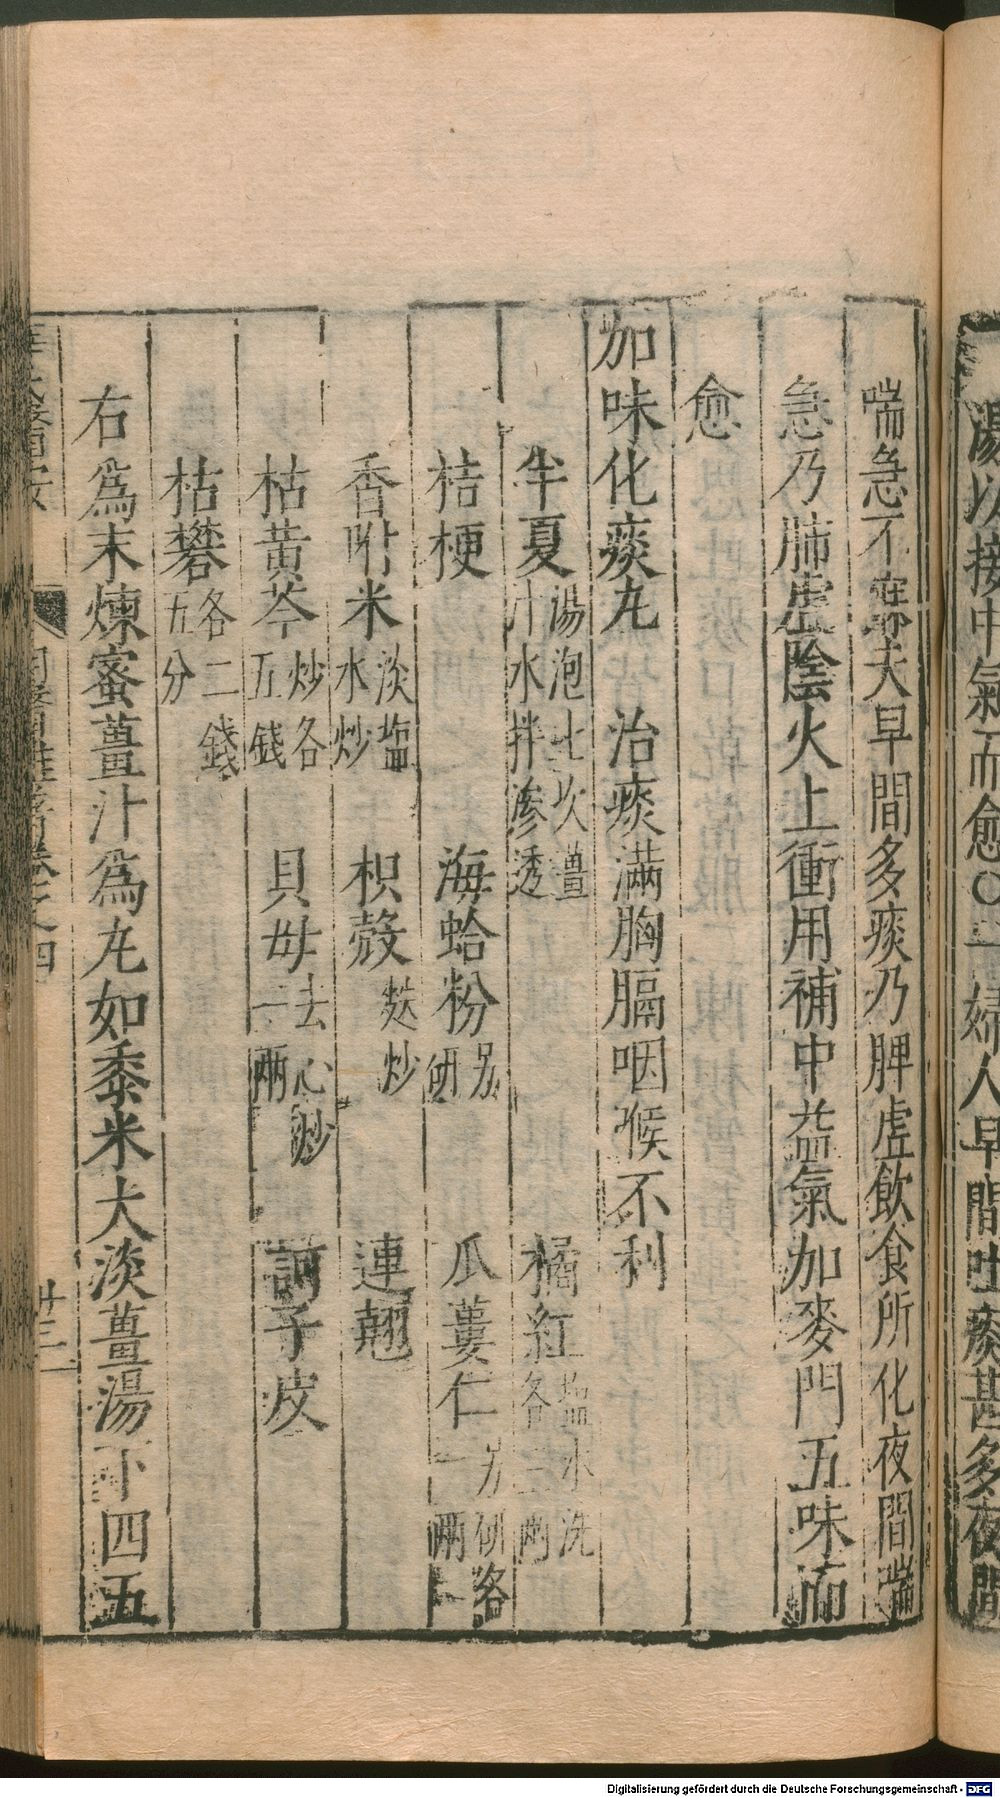 湯以接中氣而愈〇一婦人早間吐痰甚多夜間
喘急不寐夫早間多痰乃脾虛飲食所化夜間喘
急乃肺虛陰火上衝用補中益氣加麥門五味而
愈
加味化痰丸　治痰滿胸膈咽喉不利
半夏湯泡七次薑汁水拌滲透　橘紅塩水洗各二兩
桔梗　海蛤粉另研　瓜蔞仁另研各一兩
香附米淡塩水炒　枳殼麩炒　連翹
枯黄芩炒各五錢　貝母去心炒一兩　訶子皮
枯礬各二錢五分
右爲末煉蜜薑汁爲丸如黍米大淡薑湯下四五
卷之四
廿三
Digitalisierung gefördert durch die Deutsche Forschungsgemeinschaft - DFG